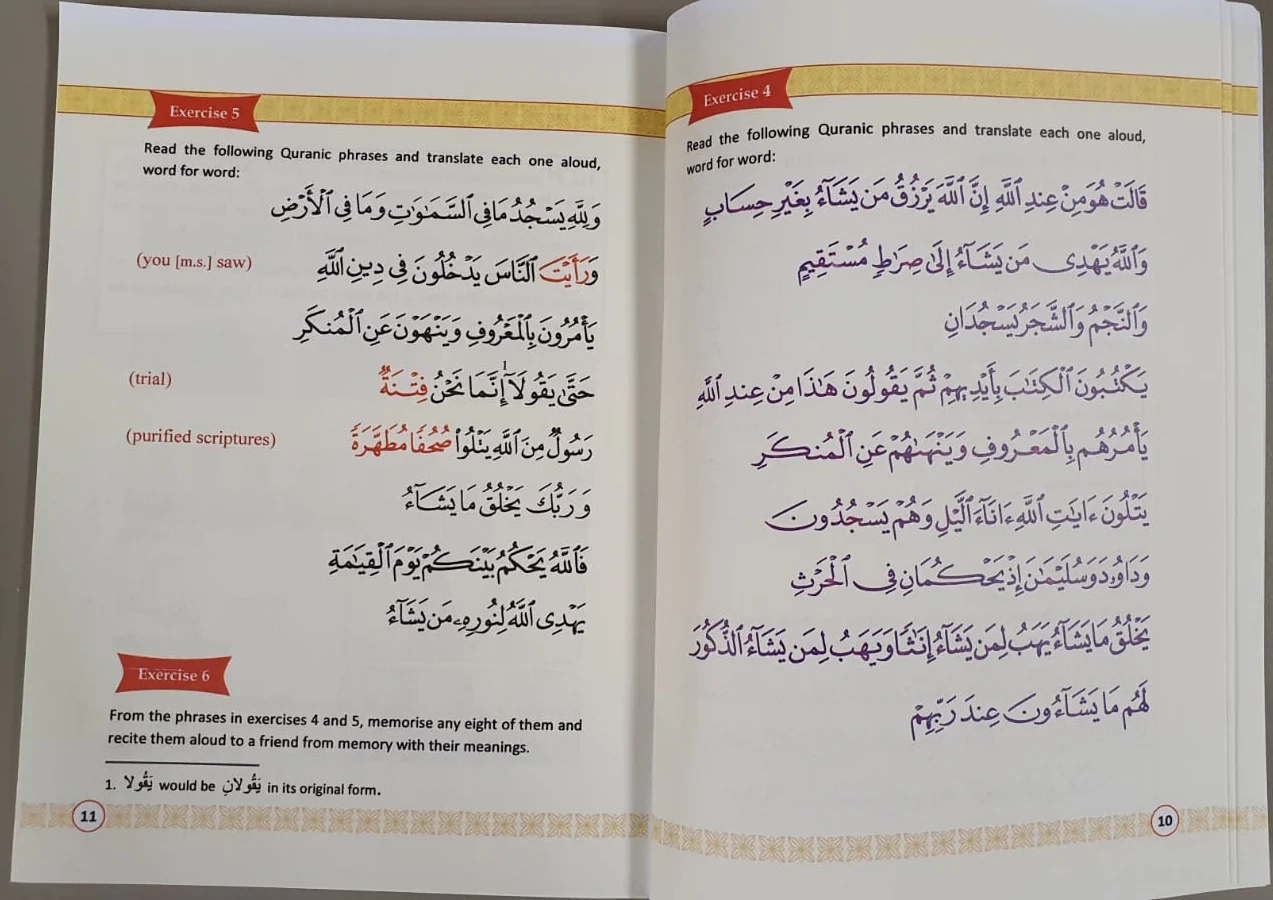 Exercise 4
Read the following Quranic phrases and translate each one aloud,
word for word:
قَالَتْ هُوَ مِنْ عِندِ ٱللَّهِ إِنَّ ٱللَّهَ يَرْزُقُ مَن يَشَآءُ بِغَيْرِ حِسَابٍ
وَٱللَّهُ يَهْدِى مَن يَشَآءُ إِلَىٰ صِرَٰطٍ مُّسْتَقِيمٍ
وَٱلنَّجْمُ وَٱلشَّجَرُ يَسْجُدَانِ
يَكْتُبُونَ ٱلْكِتَٰبَ بِأَيْدِيهِمْ ثُمَّ يَقُولُونَ هَٰذَا مِنْ عِندِ ٱللَّهِ
يَأْمُرُهُم بِٱلْمَعْرُوفِ وَيَنْهَىٰهُمْ عَنِ ٱلْمُنكَرِ
يَتْلُونَ ءَايَٰتِ ٱللَّهِ ءَانَآءَ ٱلَّيْلِ وَهُمْ يَسْجُدُونَ
وَدَاوُۥدَ وَسُلَيْمَٰنَ إِذْ يَحْكُمَانِ فِى ٱلْحَرْثِ
يَخْلُقُ مَا يَشَآءُ يَهَبُ لِمَن يَشَآءُ إِنَٰثًا وَيَهَبُ لِمَن يَشَآءُ ٱلذُّكُورَ
لَهُم مَا يَشَآءُونَ عِندَ رَبِّهِمْ
10
Exercise 5
Read the following Quranic phrases and translate each one aloud,
word for word:
وَلِلَّهِ يَسْجُدُ مَا فِى ٱلسَّمَٰوَٰتِ وَمَا فِى ٱلْأَرْضِ
وَرَأَيْتَ ٱلنَّاسَ يَدْخُلُونَ فِى دِينِ ٱللَّهِ (you [m.s.] saw)
يَأْمُرُونَ بِٱلْمَعْرُوفِ وَيَنْهَوْنَ عَنِ ٱلْمُنكَرِ
حَتَّىٰ يَقُولَآ1 إِنَّمَا نَحْنُ فِتْنَةٌ (trial)
رَسُولٌ مِّنَ ٱللَّهِ يَتْلُوا۟ صُحُفًا مُّطَهَّرَةً (purified scriptures)
وَرَبُّكَ يَخْلُقُ مَا يَشَآءُ
فَٱللَّهُ يَحْكُمُ بَيْنَكُمْ يَوْمَ ٱلْقِيَٰمَةِ
يَهْدِى ٱللَّهُ لِنُورِهِۦ مَن يَشَآءُ
Exercise 6
From the phrases in exercises 4 and 5, memorise any eight of them and
recite them aloud to a friend from memory with their meanings.
1. يَقُولا would be يَقُولانِ in its original form.
11